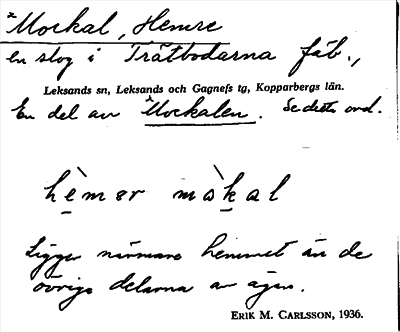 ×Mockal, Hemre
en slog i Trätbodarna fäb.,
Leksands sn, Leksands och Gagnefs tg, Kopparbergs län.
En del av ×Mockalen. Se detta ord.
hèmer mòkal
Ligger närmare hemmet än de
övriga delarna av ägan.
ERIK M. CARLSSON, 1936.